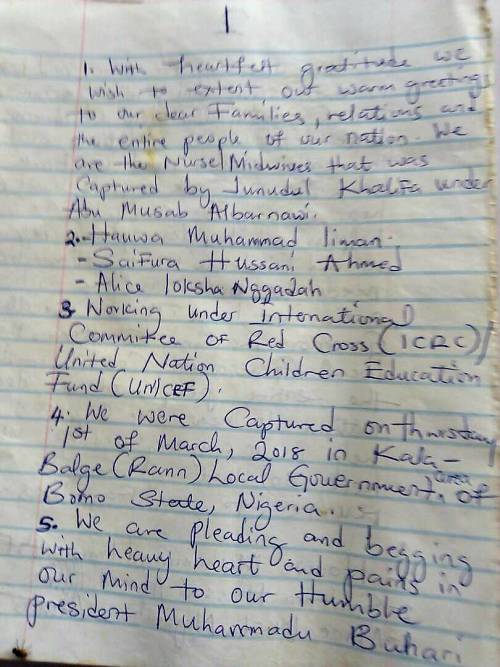 1
1. With heartfelt gratitude we
wish to extent out warm greetings
to our dear Families, relations and
the entire people of our nation. We
are the Nurse/Midwives that was
Captured by Junudul Khalifa under
Abu Musab Albarnawi.
2. - Hauwa Muhammad liman.
- Saifura Hussani Ahmed
- Alice loksha Nggadah
3. Norking under International
Commitee of Red Cross (ICRC)/
United Nation Children Education
Fund (UNICEF).
4. We were Captured on thursday
1st of March, 2018 in Kala-
Balge (Rann) Local Government area of
Borno State, Nigeria.
5. We are pleading and begging
with heavy heart and pains in
our mind to our Humble
president Muhammadu Buhari